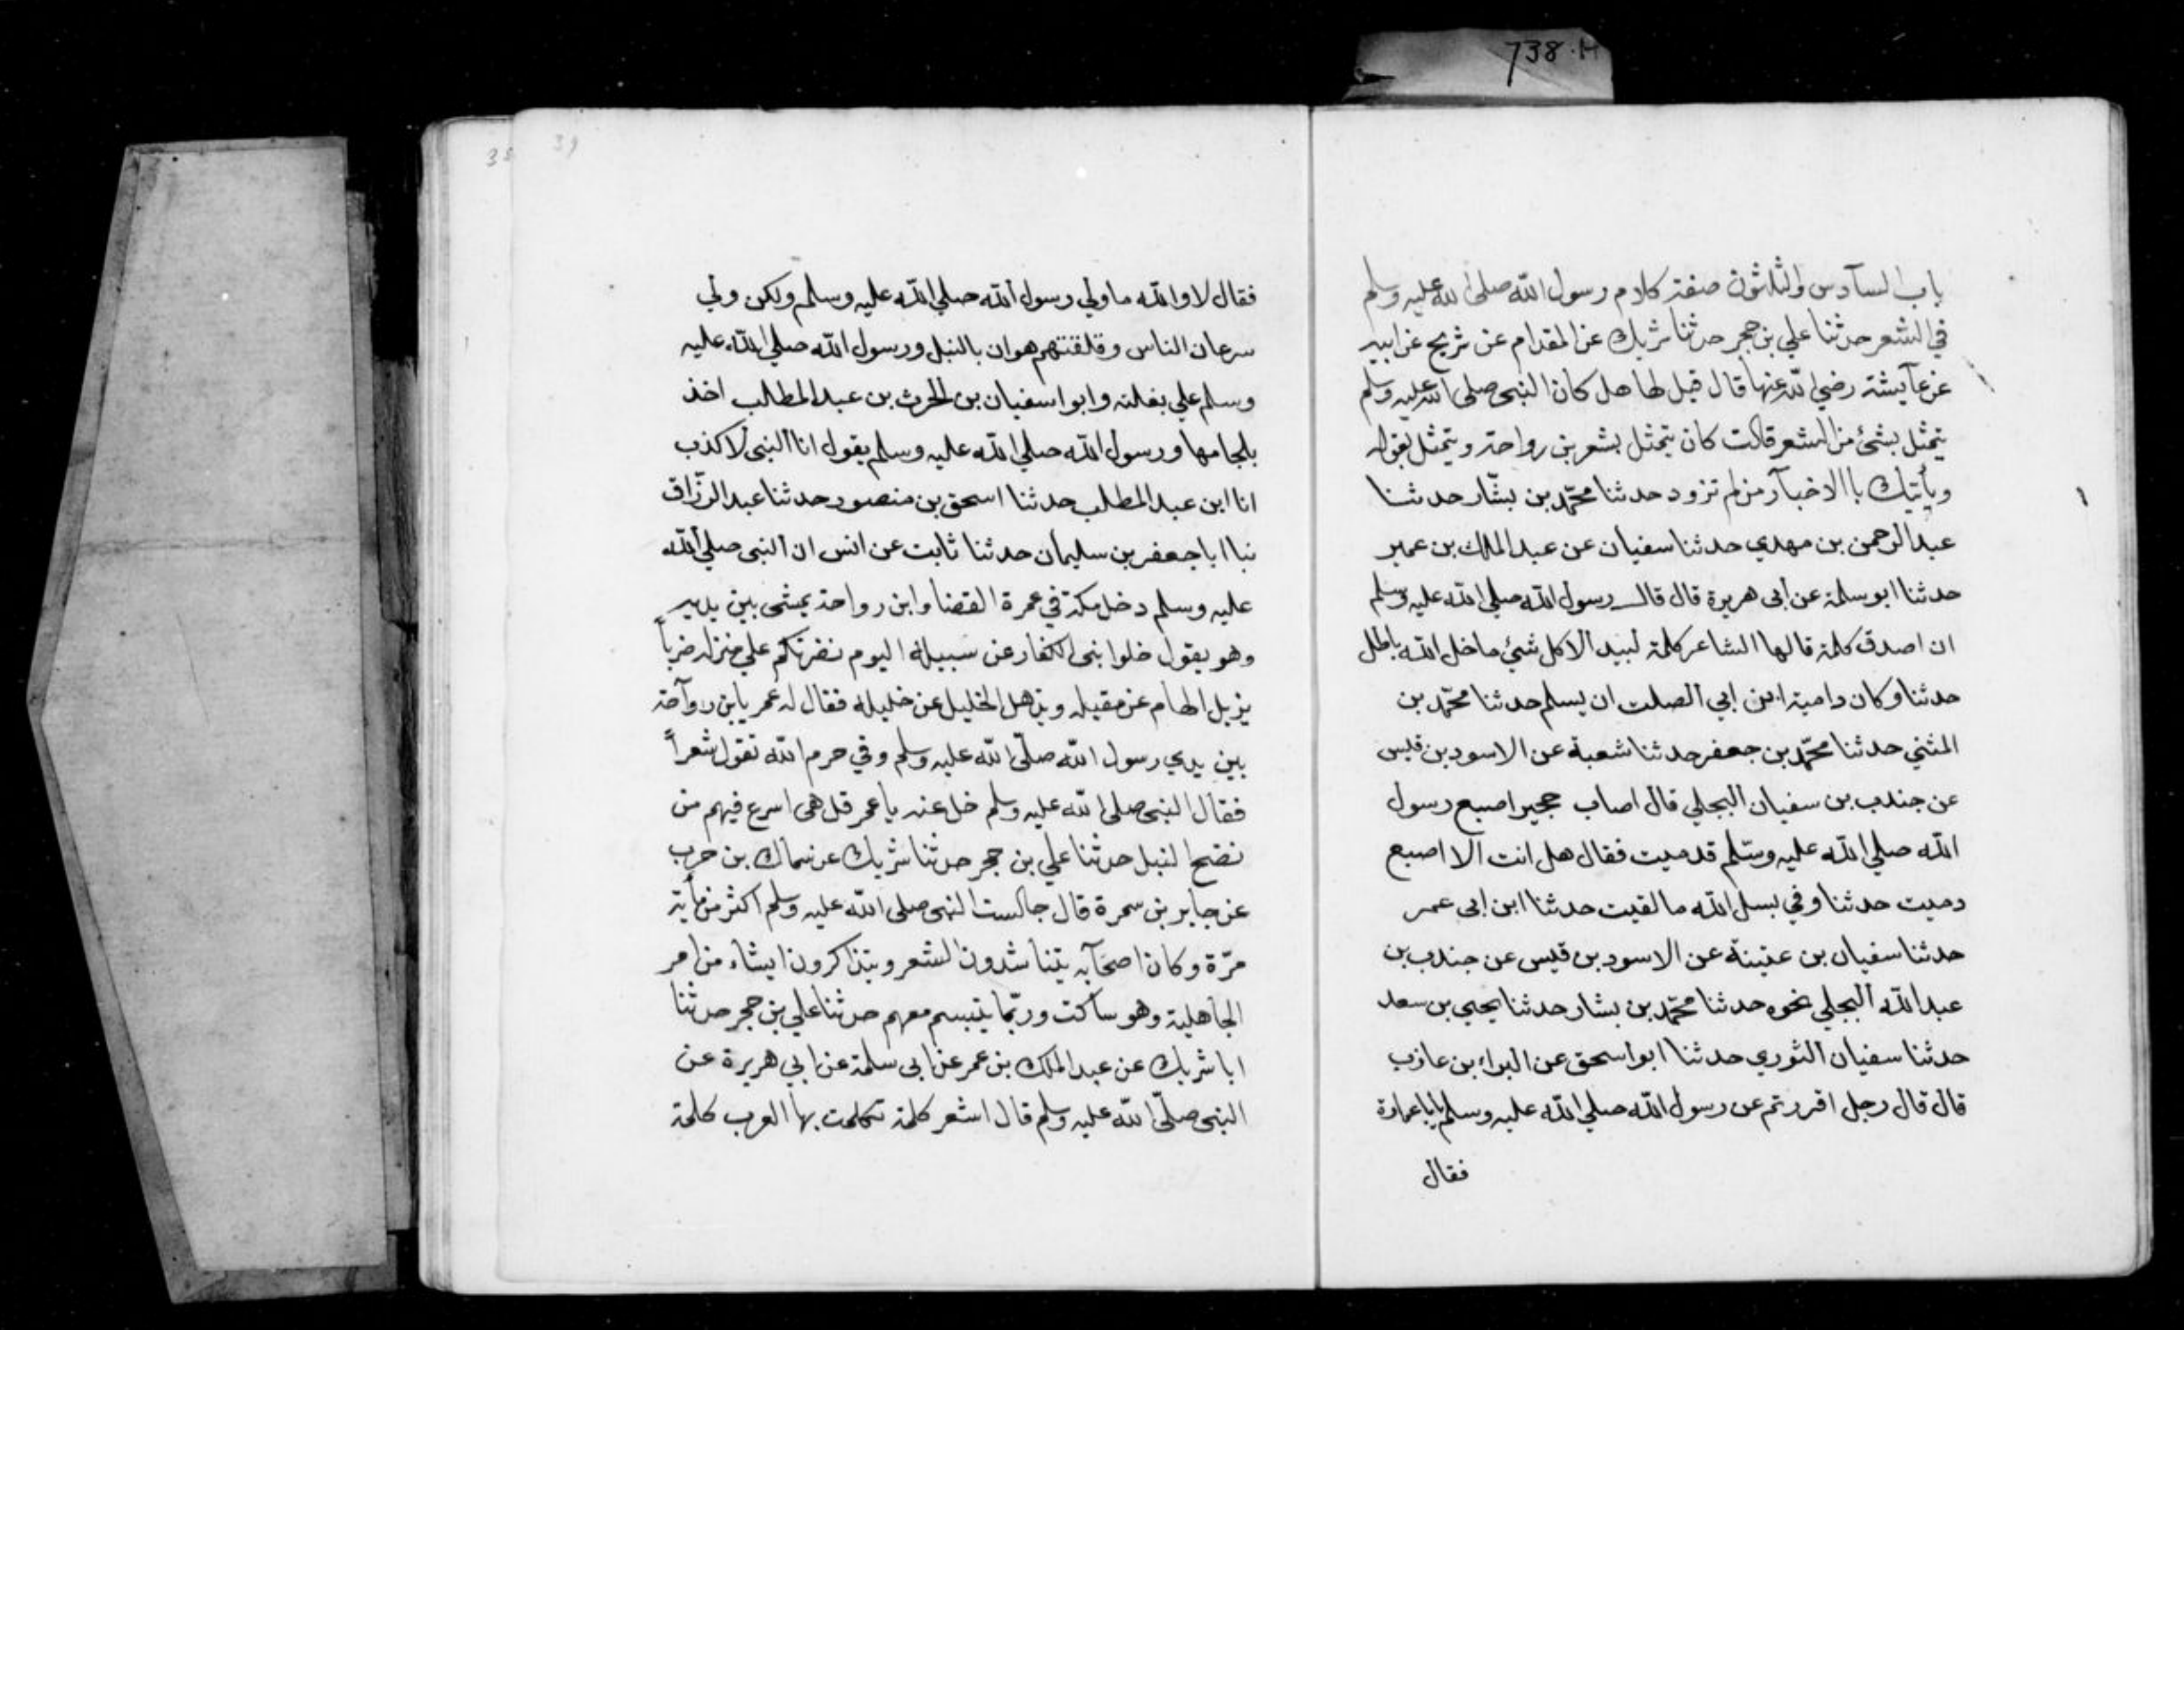 738.H
باب السآدس والثلثون صفة كلام رسول الله صلى الله عليه وسلم
في الشعر حدثنا علي بن حجر حدثنا شريك عن المقدام عن شريح عن ابيه
عن عآيشة رضي الله عنها قال قيل لها هل كان النبي صلى الله عليه وسلم
يتمثل بشئ من الشعر قالت كان يتمثل بشعر بن رواحة ويتمثل بقوله
ويأتيك باالاخبآر من لم تزود حدثنا محمّد بن بشّار حدثنا
عبد الرحمن بن مهدي حدثنا سفيان عن عبد الملك بن عمير
حدثنا ابو سلمة عن ابى هريرة قال قال رسول الله صلي الله عليه وسلم
ان اصدق كلمة قالها الشاعر كلمة لبيد الا كل شئ ما خل الله باطل
حدثنا وكان دامية ابن ابي الصلت ان يسلم حدثنا محمّد بن
المثني حدثنا محمّد بن جعفر حدثنا شعبة عن الاسود بن قيس
عن جندب بن سفيان البجلي قال اصاب حجير اصبع رسول
الله صلي الله عليه وسّلم قدميت فقال هل انت الا اصبع
دميت حدثنا وفي بسل الله ما لقيت حدثنا ابن ابى عمر
حدثنا سفيان بن عنينة عن الاسود بن قيس عن جندب بن
عبد الله البجلي نحوه حدثنا محمّد بن بشار حدثنا يحيي بن سعد
حدثنا سفيان الثوري حدثنا ابو اسحق عن البراء بن عازب
قال قال رجل افررتم عن رسول الله صلي الله عليه وسلم يابا عمارة
فقال
39
38
فقال لا والله ما ولي رسول الله صلي الله عليه وسلم ولكن ولي
سرعان الناس وقلقتهم هوان بالنبل ورسول الله صلي الله عليه
وسلم علي بغلته وابو اسفيان بن الحرث بن عبد المطالب اخذ
بلجامها ورسول الله صلي الله عليه وسلم يقول انا النبى لا كذب
انا ابن عبد المطلب حدثنا اسحق بن منصور حدثنا عبد الرزّاق
نبا ابا جعفر بن سليمان حدثنا ثابت عن انس ان النبى صلي الله
عليه وسلم دخل مكة في عمرة القضا وابن رواحة يمشى بين يديه
وهو يقول خلوا بنى الكفار عن سبيله اليوم نضربكم علي منزله ضرباً
يزيل الهام عن مقيله ويذهل الخليل عن خليله فقال له عمر يابن روآحة
بين يدي رسول الله صلّى الله عليه وسلم وفي حرم الله تقول شعراً
فقال النبى صلى الله عليه وسلم خل عنه يا عمر قل هى اسرع فيهم من
نضح النبل حدثنا علي بن حجر حدثنا شريك عن سماك بن حرب
عن جابر بن سمرة قال جالست النبى صلى الله عليه وسلم اكثر من مأية
مرّة وكان اصحآبه يتناشدون الشعر ويتذاكرون ايشاء من امر
الجاهلية وهو ساكت وربّما يتبسم معهم حدثنا علي بن حجر حدثنا
ابا شريك عن عبد الملك بن عمر عن ابى سلمة عن ابي هريرة عن
النبى صلّى الله عليه وسلم قال اشعر كلمة تكلمت بها العرب كلمة